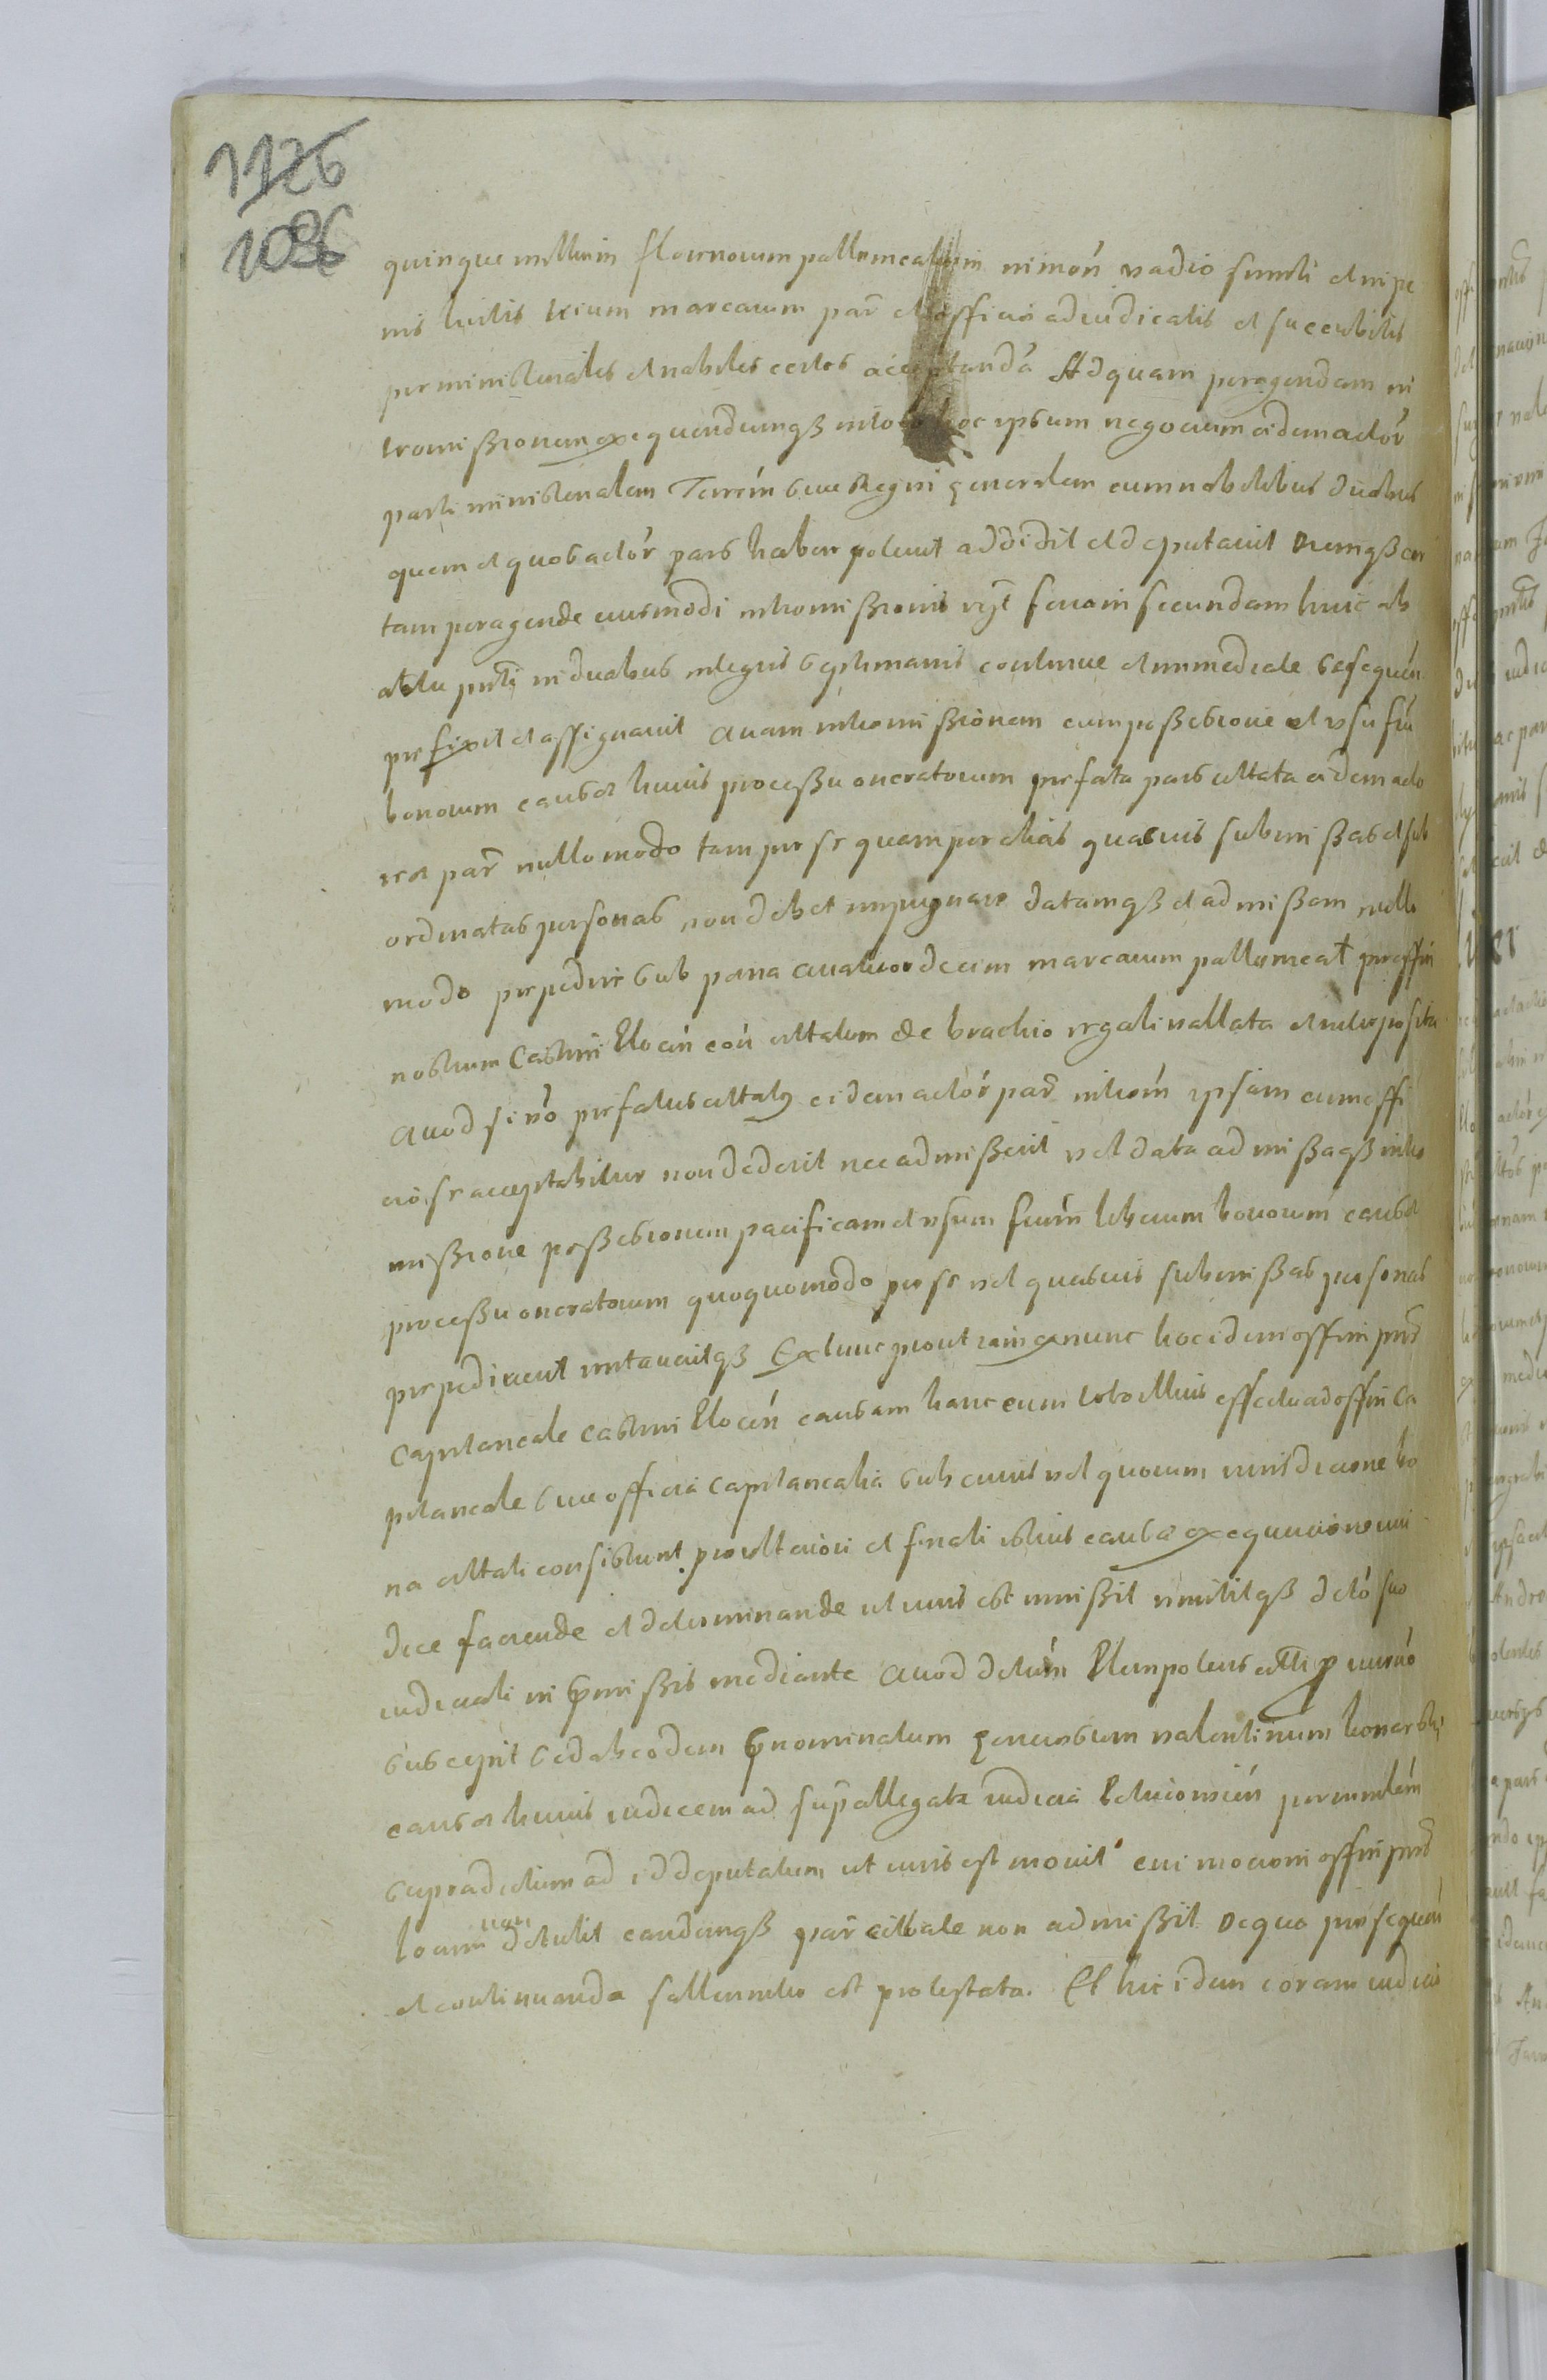 1126
1086
quinque millium florenorum pollonicalium in in omn vadio simili et in pe
nis luitis trium marcarum par et officio adiudicatis et succubitis
per ministeriales et nobiles certos acceptanda Ad quam peragendam in
tromissionem exequendumqз in toto hoc ipsum negocium eidem actor
parti ministerialem Terrim siue Regni generalem cum nobilibus duobus
quem et quos actor pars habere poluit addidit et deputauit Diemqз cer
tam peragende eiusmodi intromissionis vizt feriam secundam huic ab
actu pnti in duabus integris septimanis continue et immediate se sequen
prefixit et assignauit Quam intromissionem cum possessione et vsu fru
bonorum causae huius processu oneratorum prefata pars citata eidem acto
reae par nullo modo tam per se quam per alias quasuis submissas et sub
ordinatas personas non debet impugnare datamqз et admissam nullo
modo prepedire sub pena quatuordecim marcarum pollonicat per offm
nostrum Castren Elocen con citatum de brachio regali vallata et interposita
Quod si vo prefatus citatus eidem actor par introm ipsam cum offi
cio se acceptabitur non dederit nec admisserit vel data admissaqз intro
missione possessionem pacificam et vsum fruin liberum bonorum causae
processu oneratorum quoquomodo per se vel quasuis submissas personas
prepedirent mutaueritqз Extunc prout iam exnunc hoc idem offm pns
Capitaneale Castren Elocen causam hanc cum toto illius effectu ad offm Ca
pitaneale siue officia Capitanealia sub cuius vel quorum iurisdicione bo
na citati consistunt pro vlteriori et finali istius causae exequucione iuri
dice faciende et determinande ut iuris est remissit remititqз dcto suo
iudiciali in pmissis mediante Quod dctum Plenipotens citti pro iniuo
suscepit sed ab eodem pnominatum generosum valentinum konarski
causae huius iudicem ad supallegata iudicia tertionien per motem
supradictum ad id deputatum ut iuris est mouit cui mocioni offm pns
locum non detulit eandemqз par citatae non admissit De quo prosequen
et continuanda sollenniter est protestata. Et hic idem coram iudicio